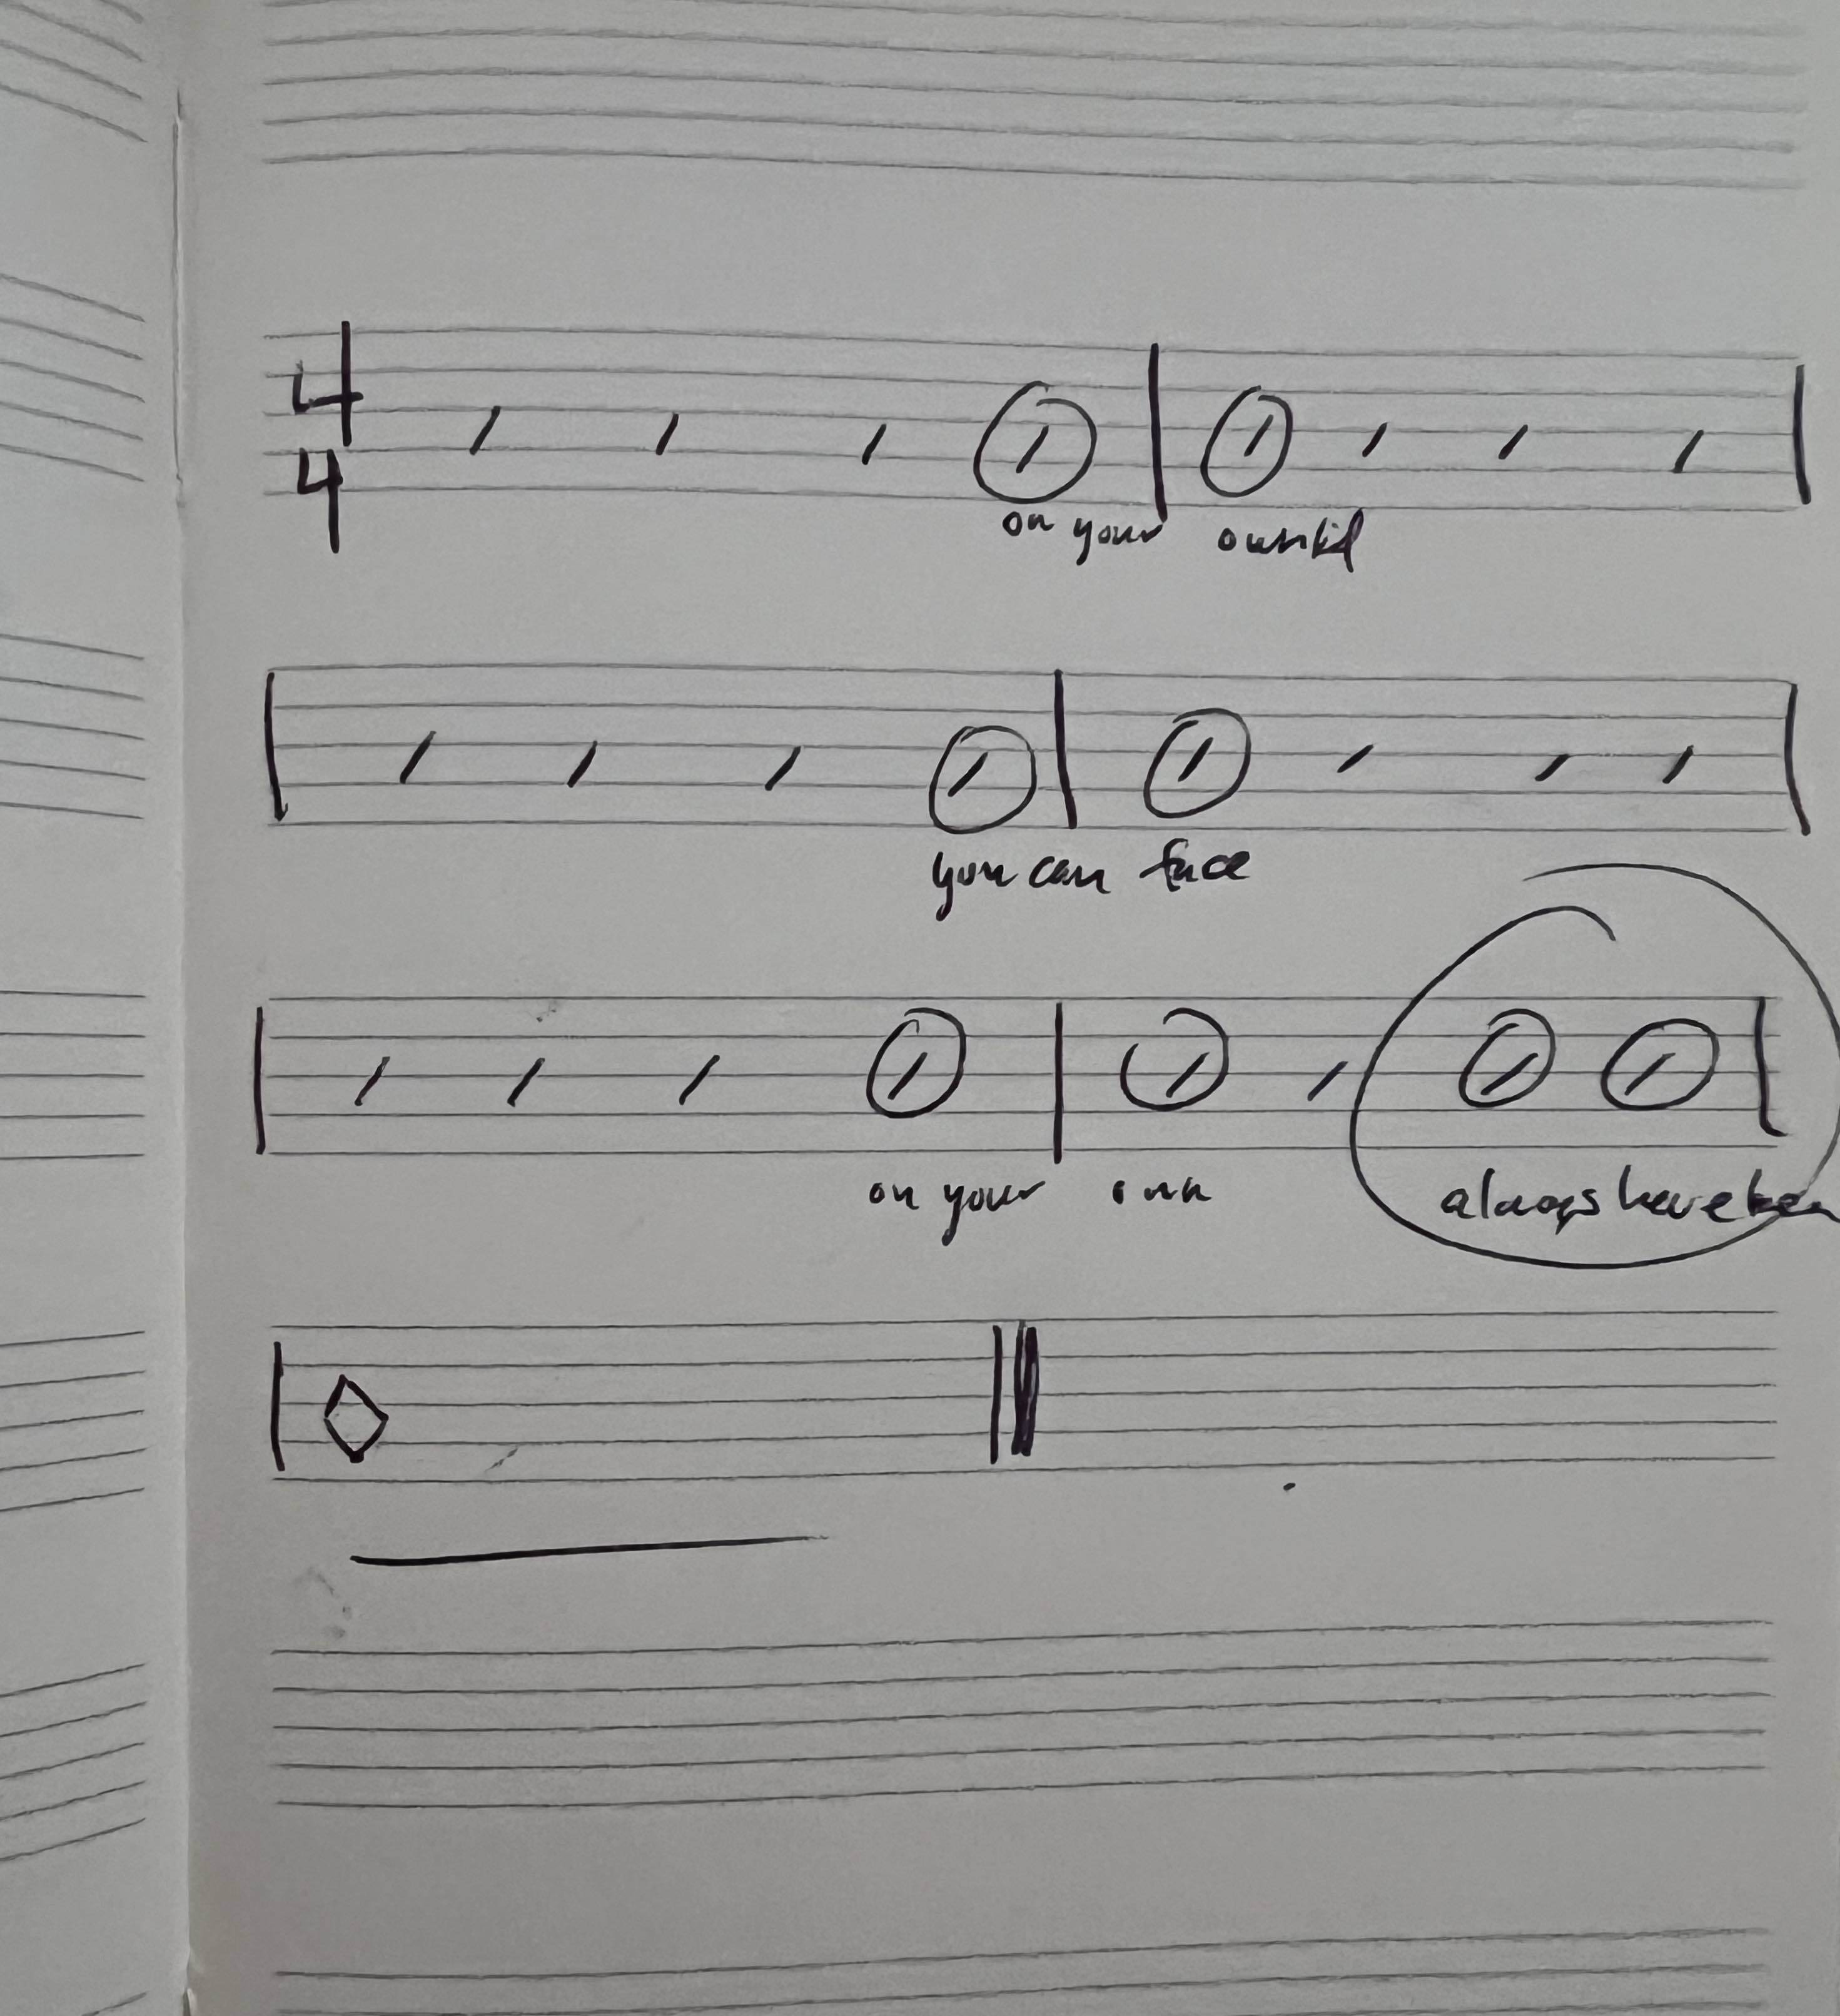 4
4
on your own kid
you can face
on your own always have been